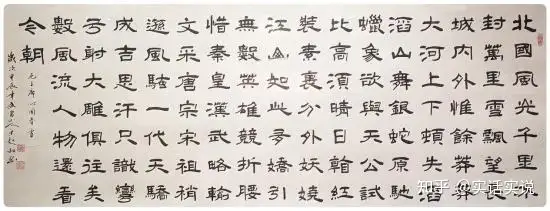 北國風光千里冰
封萬里雪飄望長
城內外惟餘莽莽
大河上下頓失滔
滔山舞銀蛇原馳
蠟象欲與天公試
比高須晴日看紅
裝素裹分外妖嬈
江山如此多嬌引
無數英雄競折腰
惜秦皇漢武略輸
文采唐宗宋祖稍
遜風騷一代天驕
成吉思汗只識彎
弓射大雕俱往矣
數風流人物還看
今朝
毛主席沁園春雪
知乎 @实话实说